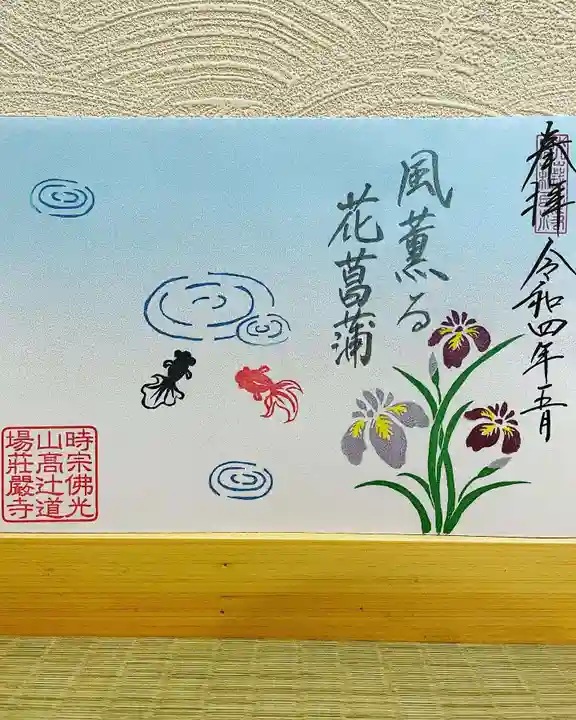 奉拝 令和四年五月
風薫る
花菖蒲
時宗佛光
山髙辻道
場莊嚴寺